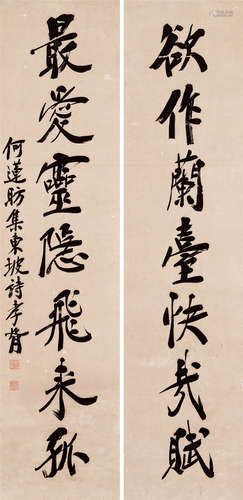 欲作蘭臺快哉賦
最愛靈隱飛來孤
何蓮舫集東坡詩孝胥